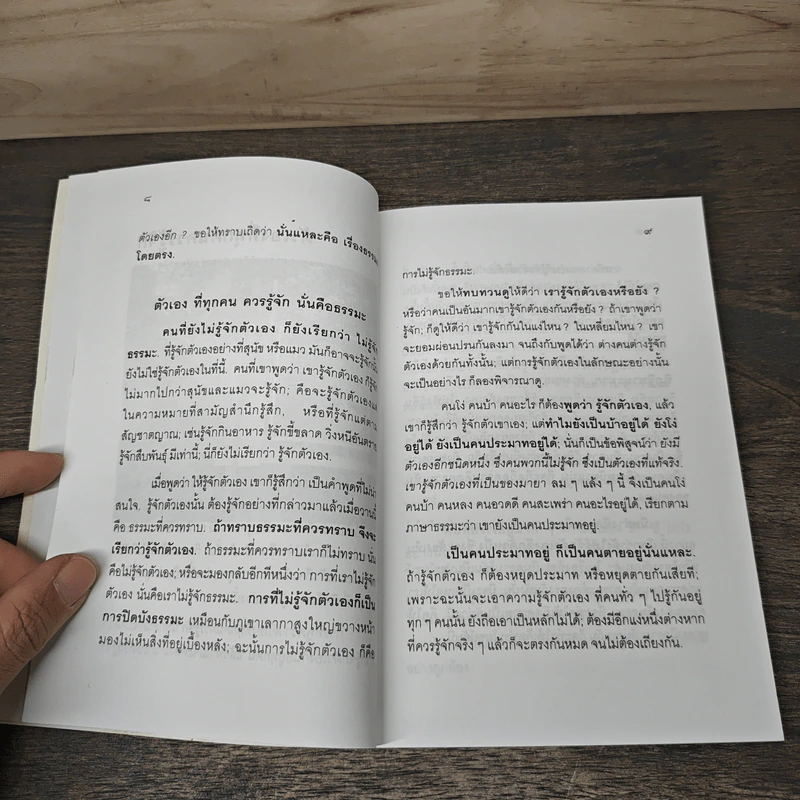 ๘
ตัวเองอีก ? ขอให้ทราบเถิดว่า นั่นแหละคือ เรื่องธรรมะ
โดยตรง.
ตัวเอง ที่ทุกคน ควรรู้จัก นั่นคือธรรมะ
คนที่ยังไม่รู้จักตัวเอง ก็ยังเรียกว่า ไม่รู้จัก
ธรรมะ. ที่รู้จักตัวเองอย่างที่สุนัข หรือแมว มันก็อาจจะรู้จักนั้น
ยังไม่ใช่รู้จักตัวเองในที่นี้. คนที่เขาพูดว่า เขารู้จักตัวเอง ก็รู้จัก
ไม่มากไปกว่าสุนัขและแมวจะรู้จัก; คือจะรู้จักตัวเองแต่
ในความหมายที่สามัญสำนึกรู้สึก, หรือที่รู้จักแต่ตาม
สัญชาตญาณ; เช่นรู้จักกินอาหาร รู้จักขี้ขลาด วิ่งหนีอันตราย
รู้จักสืบพันธุ์ มีเท่านี้; นี่ก็ยังไม่เรียกว่า รู้จักตัวเอง.
เมื่อพูดว่า ให้รู้จักตัวเอง เขาก็รู้สึกว่า เป็นคำพูดที่ไม่น่า
สนใจ. รู้จักตัวเองนั้น ต้องรู้จักอย่างที่กล่าวมาแล้วเมื่อวานนี้
คือ ธรรมะที่ควรทราบ. ถ้าทราบธรรมะที่ควรทราบ จึงจะ
เรียกว่ารู้จักตัวเอง. ถ้าธรรมะที่ควรทราบเราก็ไม่ทราบ นั่น
คือไม่รู้จักตัวเอง; หรือจะมองกลับอีกทีหนึ่งว่า การที่เราไม่รู้จัก
ตัวเอง นั่นคือเราไม่รู้จักธรรมะ. การที่ไม่รู้จักตัวเองก็เป็น
การปิดบังธรรมะ เหมือนกับภูเขาเลากาสูงใหญ่ขวางหน้า
มองไม่เห็นสิ่งที่อยู่เบื้องหลัง; ฉะนั้นการไม่รู้จักตัวเอง ก็คือ
๙
การไม่รู้จักธรรมะ.
ขอให้ทบทวนดูให้ดีว่า เรารู้จักตัวเองหรือยัง ?
หรือว่าคนเป็นอันมากเขารู้จักตัวเองกันหรือยัง ? ถ้าเขาพูดว่า
รู้จัก; ก็ดูให้ดีว่า เขารู้จักกันในแง่ไหน ? ในเหลี่ยมไหน ? เขา
จะยอมผ่อนปรนกันลงมา จนถึงกับพูดได้ว่า ต่างคนต่างรู้จัก
ตัวเองด้วยกันทั้งนั้น; แต่การรู้จักตัวเองในลักษณะอย่างนั้น
จะเป็นอย่างไร ก็ลองพิจารณาดู.
คนโง่ คนบ้า คนอะไร ก็ต้องพูดว่า รู้จักตัวเอง, แล้ว
เขาก็รู้สึกว่า รู้จักตัวเขาเอง; แต่ทำไมยังเป็นบ้าอยู่ได้ ยังโง่
อยู่ได้ ยังเป็นคนประมาทอยู่ได้; นั่นก็เป็นข้อพิสูจน์ว่า ยังมี
ตัวเองอีกชนิดหนึ่ง ซึ่งคนพวกนี้ไม่รู้จัก ซึ่งเป็นตัวเองที่แท้จริง.
เขารู้จักตัวเองที่เป็นของมายา ลม ๆ แล้ง ๆ นี้ จึงเป็นคนโง่
คนบ้า คนหลง คนอวดดี คนสะเพร่า คนอะไรอยู่ได้, เรียกตาม
ภาษาธรรมะว่า เขายังเป็นคนประมาทอยู่.
เป็นคนประมาทอยู่ ก็เป็นคนตายอยู่นั่นแหละ.
ถ้ารู้จักตัวเอง ก็ต้องหยุดประมาท หรือหยุดตายกันเสียที;
เพราะฉะนั้นจะเอาความรู้จักตัวเอง ที่คนทั่ว ๆ ไปรู้กันอยู่
ทุก ๆ คนนั้น ยังถือเอาเป็นหลักไม่ได้; ต้องมีอีกแง่หนึ่งต่างหาก
ที่ควรรู้จักจริง ๆ แล้วก็จะตรงกันหมด จนไม่ต้องเถียงกัน.